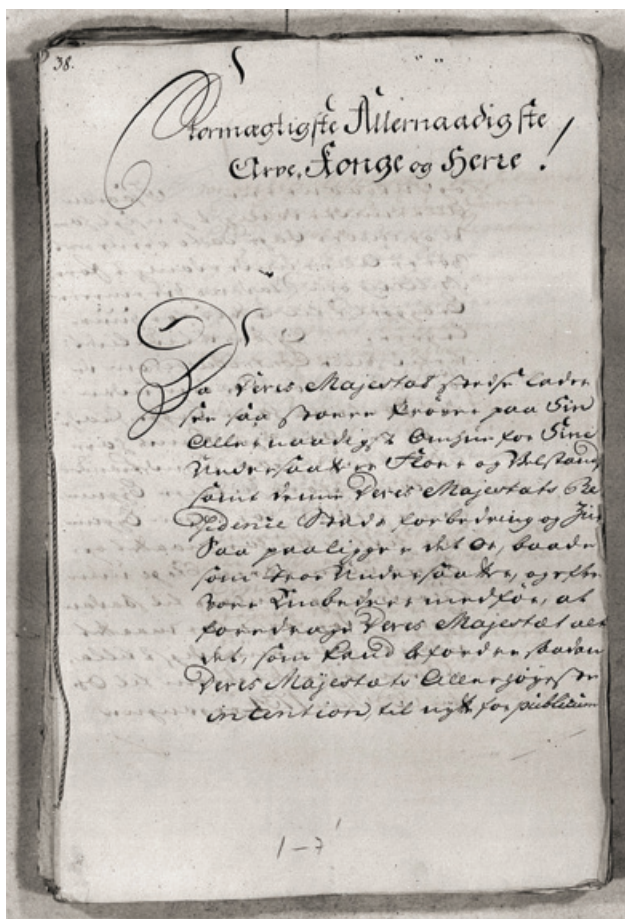 38.
Stormægtigste Allernaadigste
Arve, Konge og Herre!
Da Deres Majestæt stedse lader
see saa store Prøver paa Sin
Allernaadigst Omhue for Sine
Undersaatters Flor og Velstand
samt denne Deres Majestæts Re
sidence Stads forbedring og Ziir
Saa paaligger det Os, baade
som troe Undersaatter, og efter
vore Embeders medfør, at
foredrage Deres Majestæt alt
det, som kand befordre saadan
Deres Majestæts Allerhøyeste
intention, til nytte for publicum
1-7